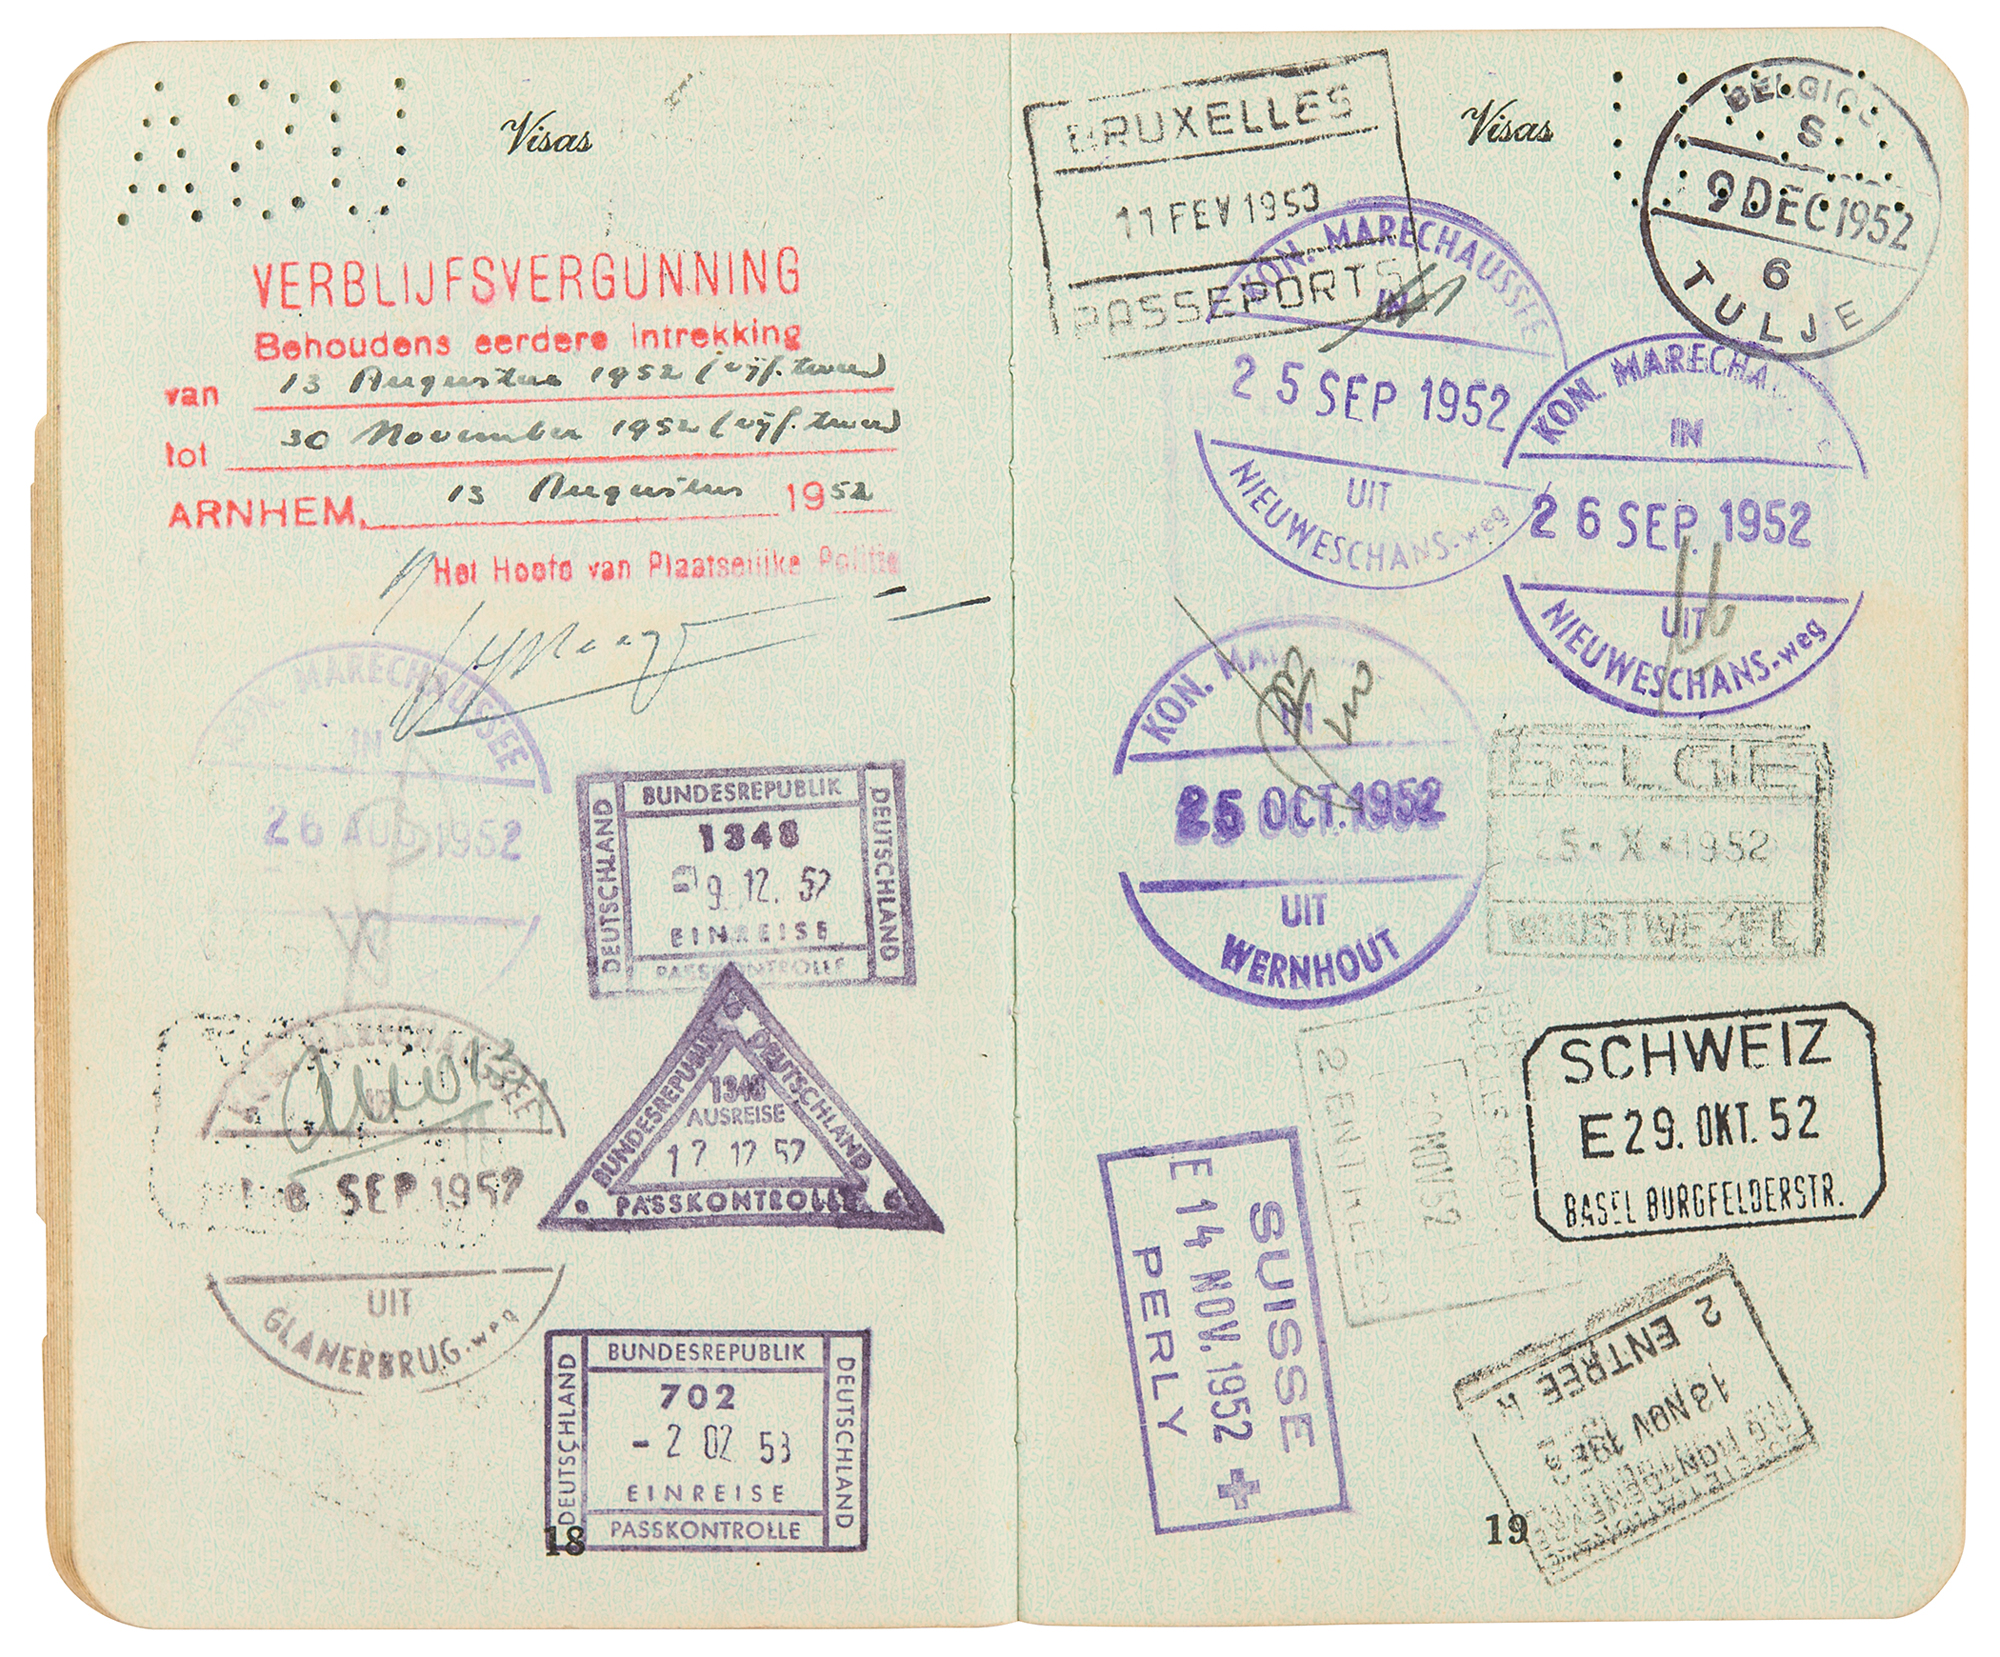 Visas
VERBLIJFSVERGUNNING
Behoudens eerdere intrekking
van 13 Augustus 1952 (vijf. twee)
tot 30 November 1952 (vijf. twee)
ARNHEM, 13 Augustus 1952
Het Hoofd van Plaatselijke Politie
KON. MARECHAUSSEE
IN
26 AUG 1952
BUNDESREPUBLIK
DEUTSCHLAND
DEUTSCHLAND
1348
9. 12. 52
EINREISE
PASSKONTROLLE
MARECHAUSSEE
SEP 1952
UIT
GLANERBRUG-weg
BUNDESREPUBLIK DEUTSCHLAND
1348
AUSREISE
12 12 52
PASSKONTROLLE
BUNDESREPUBLIK
DEUTSCHLAND
DEUTSCHLAND
702
- 2 02 53
EINREISE
PASSKONTROLLE
18
Visas
BRUXELLES
11 FEV 1953
PASSEPORTS
BELGIQUE
S
9 DEC 1952
6
TULJE
KON. MARECHAUSSEE
IN
25 SEP 1952
UIT
NIEUWESCHANS-weg
KON. MARECHA
IN
26 SEP. 1952
UIT
NIEUWESCHANS-weg
KON. MA
IN
25 OCT. 1952
UIT
WERNHOUT
BELGIE
25 - X - 1952
WUUSTWEZEL
SCHWEIZ
E 29. OKT. 52
BASEL BURGFELDERSTR.
2 ENTREES
NOV 52
SUISSE
E 14 NOV. 1952
PERLY
2 ENTREE
13 NOV 195
19